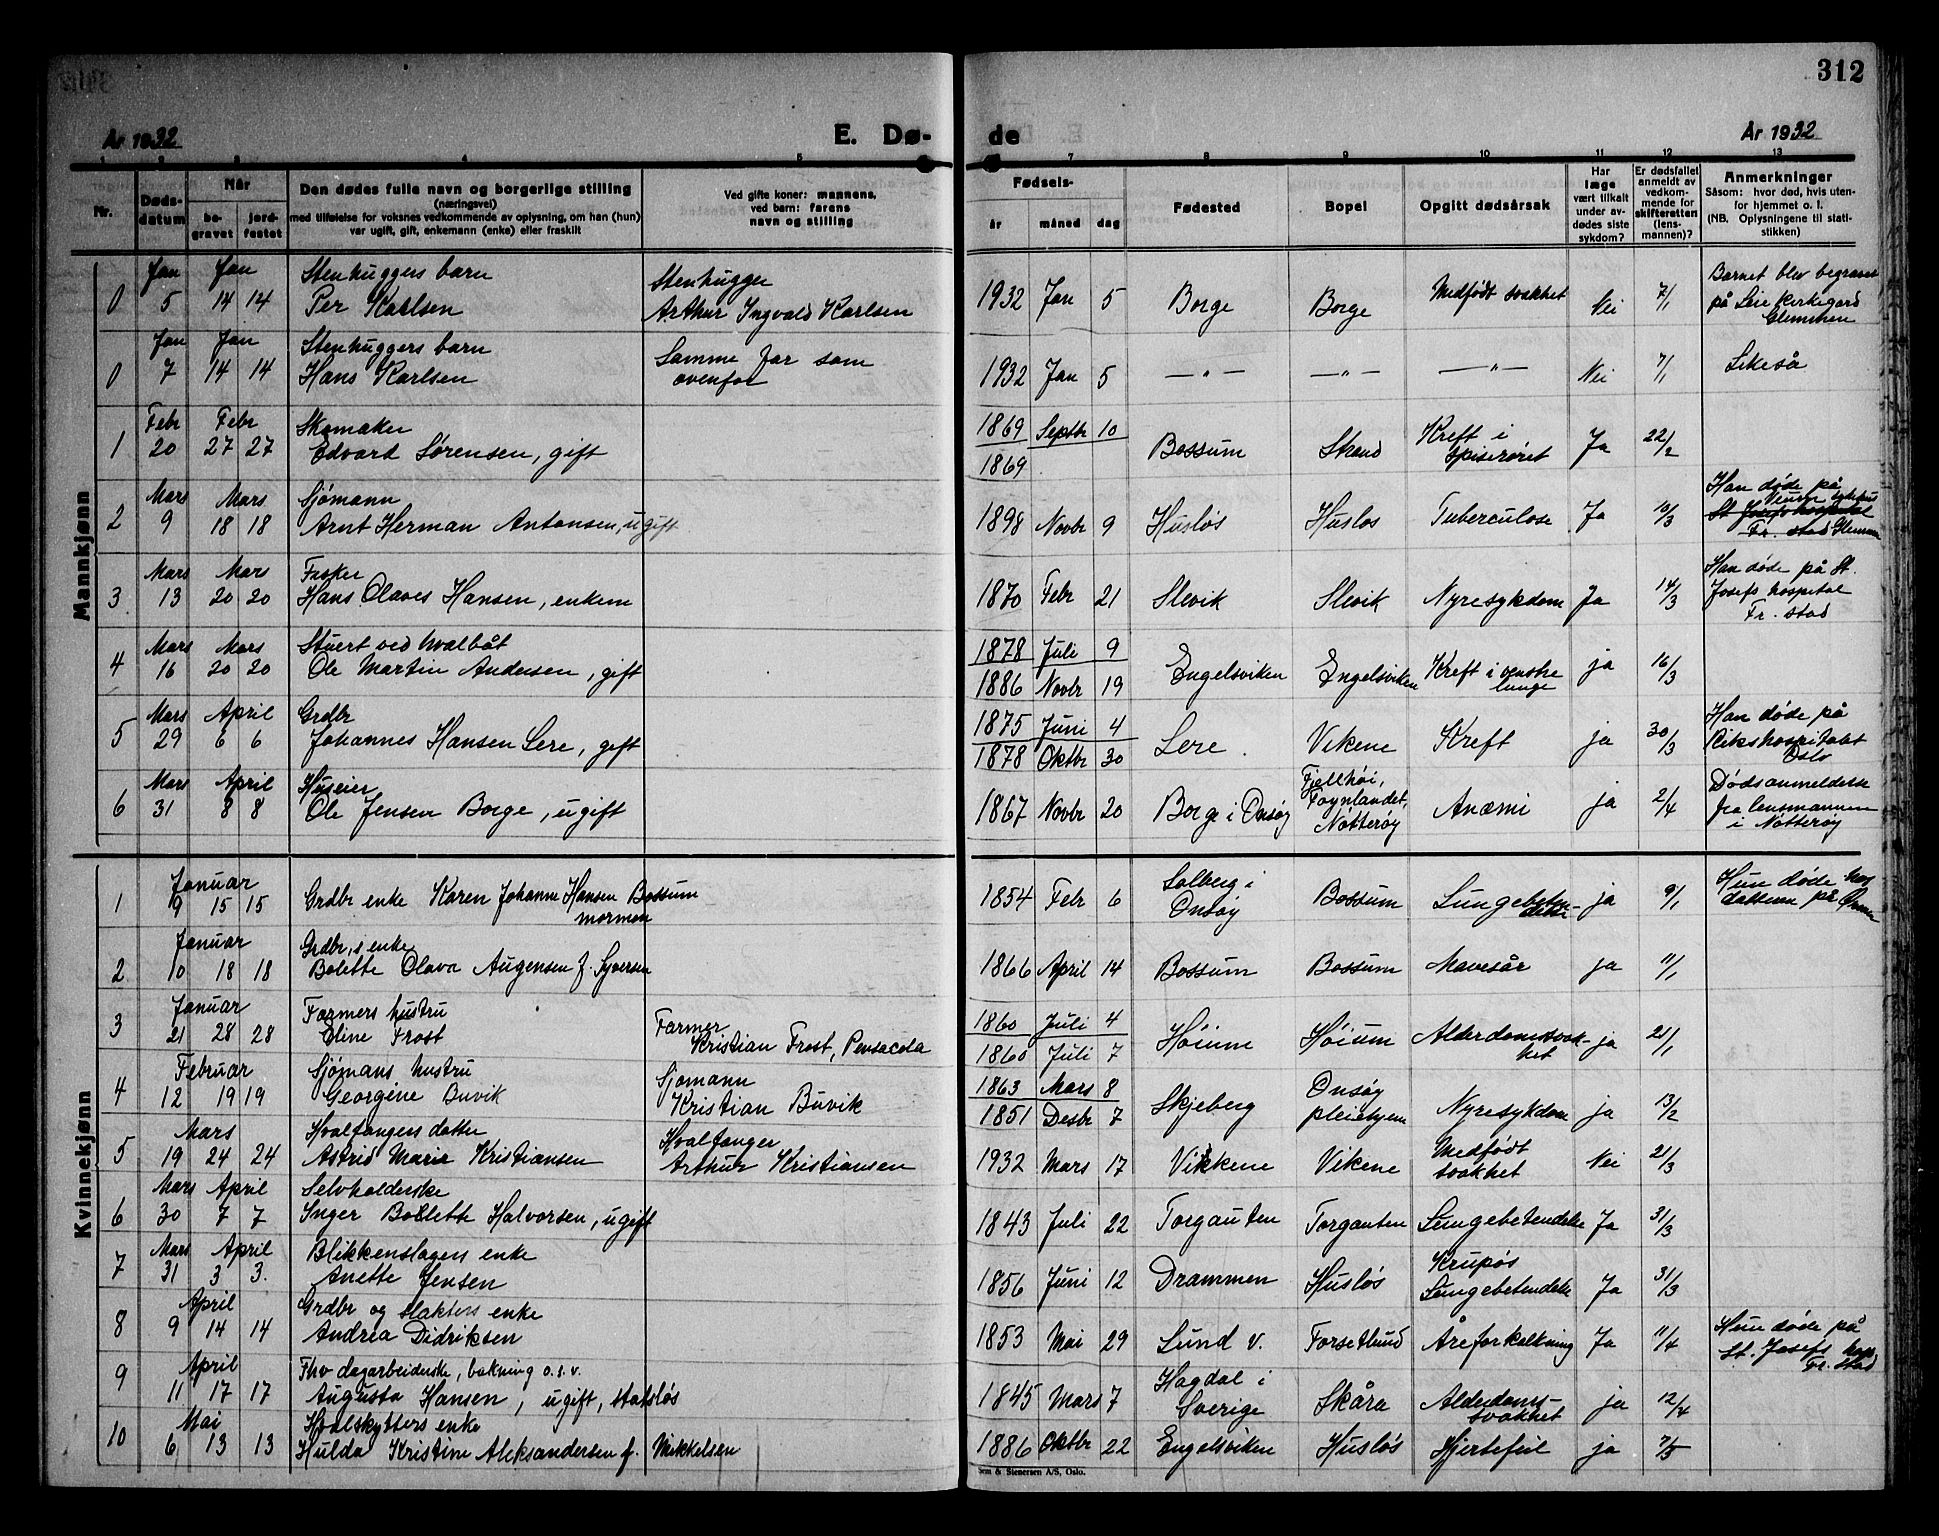 312
År 1932
E. Dø-
de
År 1932
1 2 3 4 5 7 8 9 10 11 12 13
Nr.
Døds-
datum
Når
be-
gravet
jord-
festet
Den dødes fulle navn og borgerlige stilling
(næringsvei)
med tilføielse for voksnes vedkommende av oplysning, om han (hun)
var ugift, gift, enkemann (enke) eller fraskilt
Ved gifte koner: mannens,
ved barn: farens
navn og stilling
Fødsels-
år måned dag
Fødested
Bopel
Opgitt dødsårsak
Har
læge
vært tilkalt
under av-
dødes siste
sykdom?
Er dødsfallet
anmeldt av
vedkom-
mende for
skifteretten
(lens-
mannen)?
Anmerkninger
Såsom: hvor død, hvis uten-
for hjemmet o. l.
(NB. Oplysningene til stati-
stikken)
Mannkjønn
Jan Jan Stenhuggers barn Stenhugger Medfødt svakhet Barnet blev begravet
0 5 14 14 Per Karlsen Arthur Ingvald Karlsen 1932 Jan 5 Borge Borge Nei 7/1 på Leie Kirkegård
Glemmen
Jan Jan Stenhuggers barn Samme far som
0 7 14 14 Hans Karlsen ovenfor 1932 Jan 5 —„— —„— —„— Nei 7/1 Likeså
Febr Febr Skomaker 1869 Septbr 10 Kreft i
1 20 27 27 Edvard Sørensen, gift 1869 Bossum Strand spiserøret Ja 22/2
Mars Mars Sjømann Han døde på
2 9 18 18 Arnt Herman Antonsen, ugift 1898 Novbr 9 Husløs Husløs Tuberculose Ja 10/3 St. Josefs hospital
Fr. stad Glemmen
Mars Mars Fisker Han døde på St.
3 13 20 20 Hans Olaves Hansen, enkem 1870 Febr 21 Slevik Slevik Nyresykdom Ja 14/3 Josefs hospital
Fr. stad
Mars Mars Stuert ved hvalbåt 1878 Juli 9
4 16 20 20 Ole Martin Andersen, gift 1886 Novbr 19 Engelsviken Engelsviken Kreft i venstre lunge ja 16/3
Mars April Grdbr 1875 Juni 4 Han døde på
5 29 6 6 Johannes Hansen Lere, gift 1878 Oktbr 30 Lere Vikene Kreft ja 30/3 Rikshospitalet
Oslo
Mars April Huseier Fjellhøi, Dødsanmeldelse
6 31 8 8 Ole Jensen Borge, ugift 1867 Novbr 20 Borge i Onsøy Føynlandet, Nøtterøy Anæmi ja 2/4 fra lensmannen
i Nøtterøy
Kvinnekjønn
Januar Solberg i Hun døde hos
1 9 15 15 Grdbr enke Karen Johanne Hansen Bossum 1854 Febr 6 Onsøy Bossum Lungebeten-delse ja 9/1 datteren på
mormon
Januar Grdbr,s enke
2 10 18 18 Bolette Olava Augensen f. Syversen 1866 April 14 Bossum Bossum Mavesår ja 11/1
Januar Farmers hustru Farmer 1860 Juli 4
3 21 28 28 Eline Frost Kristian Frost, Pensacola 1860 Juli 7 Høium Høium Alderdomssvak-het ja 21/1
Februar Sjømans hustru Sjømann 1863 Mars 8 Onsøy
4 12 19 19 Georgine Buvik Kristian Buvik 1851 Desbr 7 Skjeberg pleiehjem Nyresykdom ja 13/2
Mars Hvalfangers datter Hvalfanger Medfødt
5 19 24 24 Astrid Marie Kristiansen Arthur Kristiansen 1932 Mars 17 Vikene Vikene svakhet Nei 21/3
Mars April Selvholderske
6 30 7 7 Inger Bollette Halvorsen, ugift 1843 Juli 22 Torgauten Torgauten Lungebetendelse Ja 31/3
Mars April Blikkenslagers enke Krupøs
7 31 3 3. Anette Jensen 1856 Juni 12 Drammen Husløs Lungebetendelse Ja 31/3
April Grdbr og slakters enke Hun døde på
8 9 14 14 Andrea Didriksen 1853 Mai 29 Lund v. Forsetlund Åreforkalkning Ja 11/4 St. Josefs hosp
Fr. stad
April Fhv dagarbeiderske, bakning o.s.v. Hagdal i
9 11 17 17 Augusta Hansen, ugift, statsløs 1845 Mars 7 Sverige Skåra Alderdoms-svakhet ja 12/4
Mai Hvalskytters enke
10 6 13 13 Hulda Kristine Aleksandersen f. Mikkelsen 1886 Oktbr 22 Engelsviken Husløs Hjertefeil ja 7/5
Sem & Stenersen A/S, Oslo.